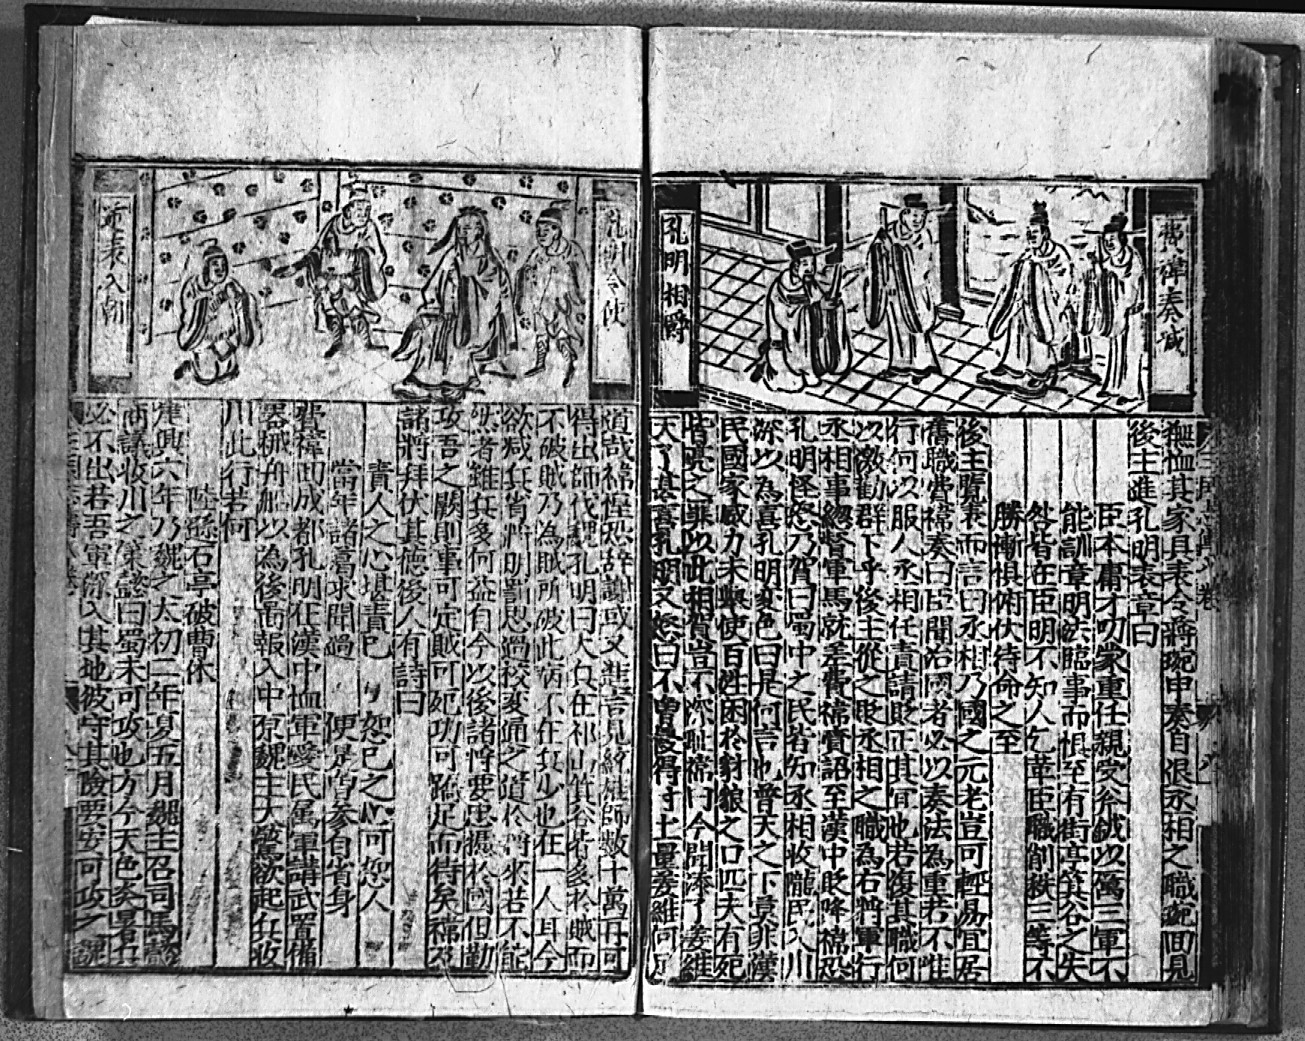 費禕奏誠
孔明相爵
撫恤其家具表令蔣琬申奏自退丞相之職琬回見
後主進孔明表章曰
臣本庸才叨蒙重任親受斧鉞以厲三軍不
能訓章明法臨事而惧至有街亭箕谷之失
咎皆在臣明不知人乞革臣職削秩三等不
勝慚惧俯伏待命之至
後主覽表而言曰丞相乃國之元老豈可輕易宜居
舊職費禕奏曰臣聞治國者必以奏法為重若不惟
行何以服人丞相任責請貶正其宜也若復其職何
以激勸群下乎後主從之貶丞相之職為右將軍行
丞相事緫督軍馬就差費禕賫詔至漢中貶降禕恐
孔明怪怒乃賀曰蜀中之民皆知丞相收隴民入川
深以為喜孔明变色曰是何言也普天之下莫非漢
民國家威力未舉使百姓困於豺狼之口匹夫有死
皆亮之罪以此相賀豈不深耻禕問今聞添了姜維
天子甚喜孔明又怒曰不曾段得寸土量姜維何足
孔明令使
賫表入朝
道哉禕惶恐辞謝或又進言見統雄師数十萬再可
得出師伐魏孔明曰大兵在祁山箕谷皆多於賊而
不破賊乃為賊所破此病不在兵少也在一人耳今
欲减兵省將明罰思過校变通之道於將來若不能
然者雖兵多何益自今以後諸將要忠攝於國但勤
攻吾之闕則事可定賊可死功可蹻足而待矣禕及
諸將拜伏其德後人有詩曰
責人之心堪責已 恕已之心可恕人
當年諸葛求聞過 便是曾參自省身
費禕回成都孔明在漢中恤軍愛民厲軍講武置備
器械舟船以為後啚報入中原魏主大驚欲起兵收
川此行若何
陸遜石亭破曹休
建興六年乃魏之太初二年夏五月魏主召司馬懿
商議收川之策懿曰蜀未可攻也方今天色炎暑兵
必不出若吾軍深入其地彼守其險要安可攻之魏